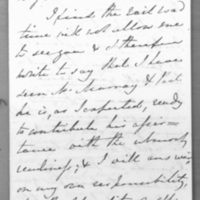 I find the railroad
time will not allow me
to see you & I therefore
write to say that I have
seen Mr Murray & that
he is, as I expected, ready
to contribute his assis-
tance with the utmost
readiness; & I will answer
on my own responsibility,